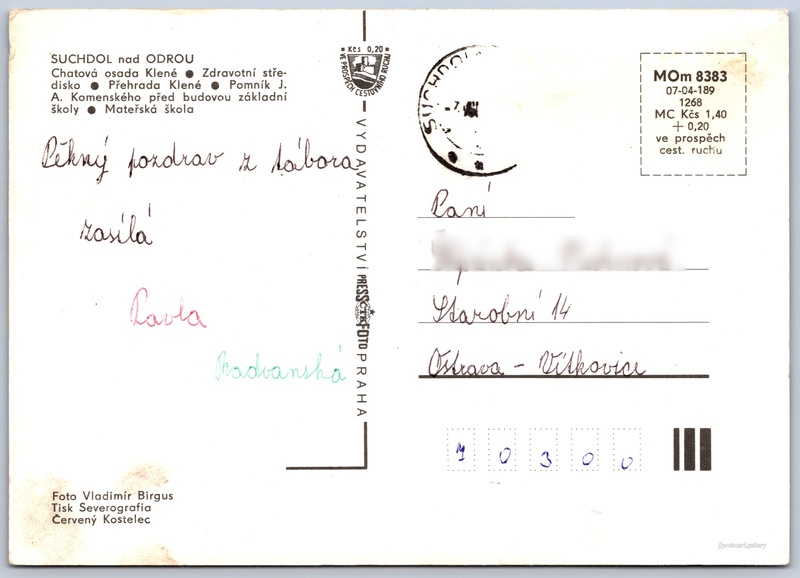 SUCHDOL nad ODROU
Chatová osada Klené ● Zdravotní stře-
disko ● Přehrada Klené ● Pomník J.
A. Komenského před budovou základní
školy ● Mateřská škola
Pěkný pozdrav z tábora
zasílá
Pavla
Radvanská
Foto Vladimír Birgus
Tisk Severografia
Červený Kostelec
Kčs 0,20
VE PROSPĚCH CESTOVNÍHO RUCHU
VYDAVATELSTVÍ PRESSFOTO PRAHA
ČTK
SUCHDOL
MOm 8383
07-04-189
1268
MC Kčs 1,40
+ 0,20
ve prospěch
cest. ruchu
Paní
Starobní 14
Ostrava - Vítkovice
70300